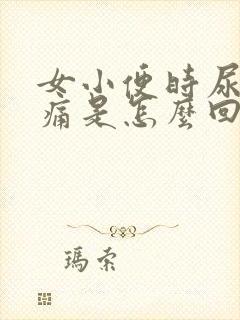 女小便時尿
痛是怎麼回
瑪索